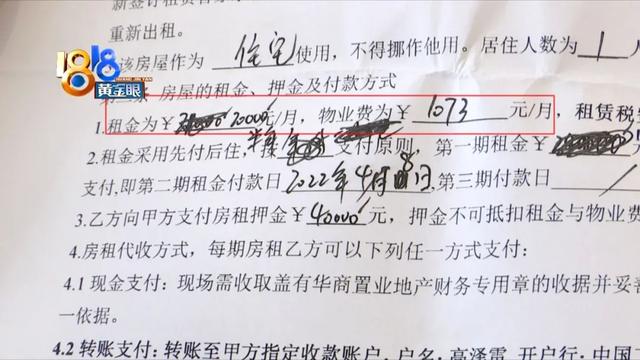 新签订租赁合
重新出租。
该房屋作为 住宅 使用，不得挪作他用。居住人数为 1 人
1818
黄金眼
房屋的租金、押金及付款方式
1.租金为￥ 20000元/月，物业费为￥ 1073 元/月，租赁税
2.租金采用先付后住，按 半年 支付原则，第一期租金￥
支付,即第二期租金付款日2022年4月8日.第三期付款日
3.乙方向甲方支付房租押金￥40000元，押金不可抵扣租金与物业费
4.房租代收方式，每期房租乙方可以下列任一方式支付：
4.1 现金支付：现场需收取盖有华商置业地产财务专用章的收据并妥善
一依据。
4.2 转账支付：转账至甲方指定收款账户，户名：高泽雷，开户行：中国